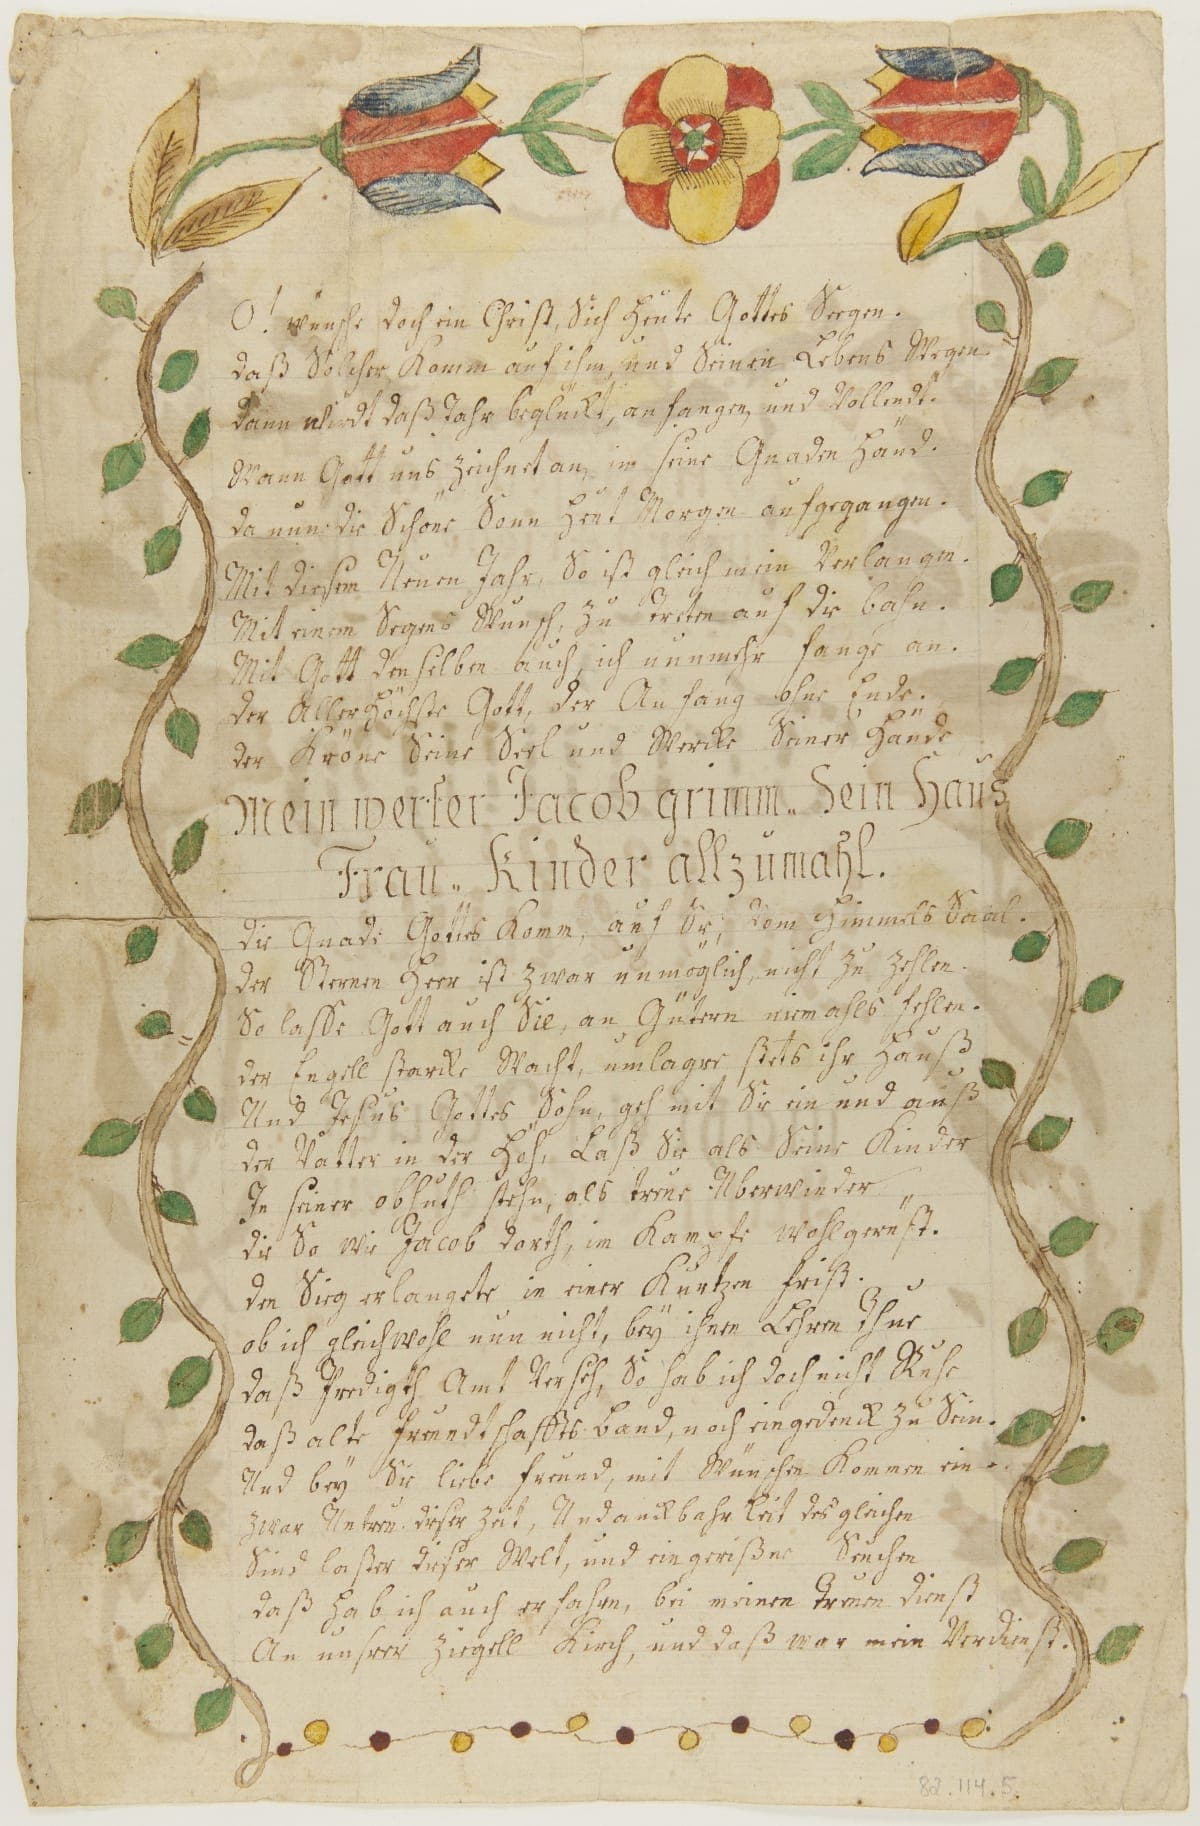 O! wünsche doch ein Christ, Sich Heute Gottes Seegen.
daß Solcher Komm auf ihm, und Seinen Lebens Wegen
dann Wirdt daß Jahr beglückt, anfangen, und Vollendt.
Wann Gott uns zeichnet an, in seine Gnaden Händ.
da nun die Schöne Sonn heut Morgen aufgegangen.
Mit diesem Neuen Jahr, So ist gleich mein Verlangen.
Mit einem Segens Wunsch, zu treten auf die bahn.
Mit Gott denselben auch, ich nunmehr fange an.
der AllerHöchste Gott, der Anfang ohne Ende.
der Kröne Seine Seel und Wercke Seiner Hände
Mein werter Jacob grimm.. Sein Haus
Frau.. Kinder allzumahl.
die Gnade Gottes Komm, auf Sie, vom Himmels Saal.
der Sternen Heer ist zwar unmöglich, nicht zu zehlen.
So lasse Gott auch Sie, an Gütern niemahls fehlen.
der Engell starcke Wacht, umlagre stets ihr Hauß
Und Jesus Gottes Sohn, geh mit Sie ein und auß
der Vatter in der Höh, Laß Sie als Seine Kinder
In seiner obhuth stehn, als treue Überwinder
die So wie Jacob dorth, im Kampfe wohlgerüst.
den Sieg erlangete in einer Kurtzen frist.
ob ich gleichwohl nun nicht, bey ihnen Lehren thue
daß Predigth Amt Verseh, So hab ich doch nicht Ruhe
daß alte freundtschaffts Band, noch eingedenck zu Sein.
Und bey Sie liebe freund, mit Wünschen Kommen ein.
zwar Untreu dieser zeit, Undanckbahrkeit des gleichen
Sind laster dieser Welt, und eingerißne Seuchen
daß hab ich auch erfahrn, bei meinen treuen dienst
An unsrer Ziegell Kirch, und daß war mein Verdienst.
82.114.5.